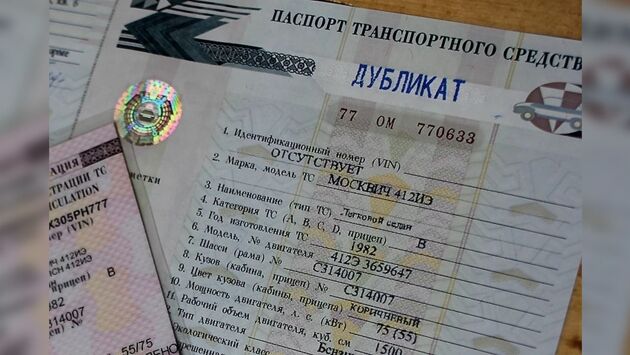 ПАСПОРТ ТРАНСПОРТНОГО СРЕДСТВ
ДУБЛИКАТ
77 ОМ 770633
1. Идентификационный номер (VIN)
ОТСУТСТВУЕТ
2. Марка, модель ТС МОСКВИЧ 412ИЭ
3. Наименование (тип ТС) Легковой седан
4. Категория ТС (А, В, С, D, прицеп) В
5. Год изготовления ТС 1982
6. Модель, № двигателя 412Э 3659647
7. Шасси (рама) № С314007
8. Кузов (кабина, прицеп) № С314007
9. Цвет кузова (кабины, прицепа) КОРИЧНЕВЫЙ
10. Мощность двигателя, л. с. (кВт) 75 (55)
11. Рабочий объем двигателя, куб. см 1500
Тип двигателя Бензи
кологический класс
метки
АЦИЯ
ТРАЦИИ ТС
CULATION
Х305РН777
мер (VIN)
ИЧ 412ИЭ
СН 412ИЭ
Прицеп) В
982
647
007
55/75